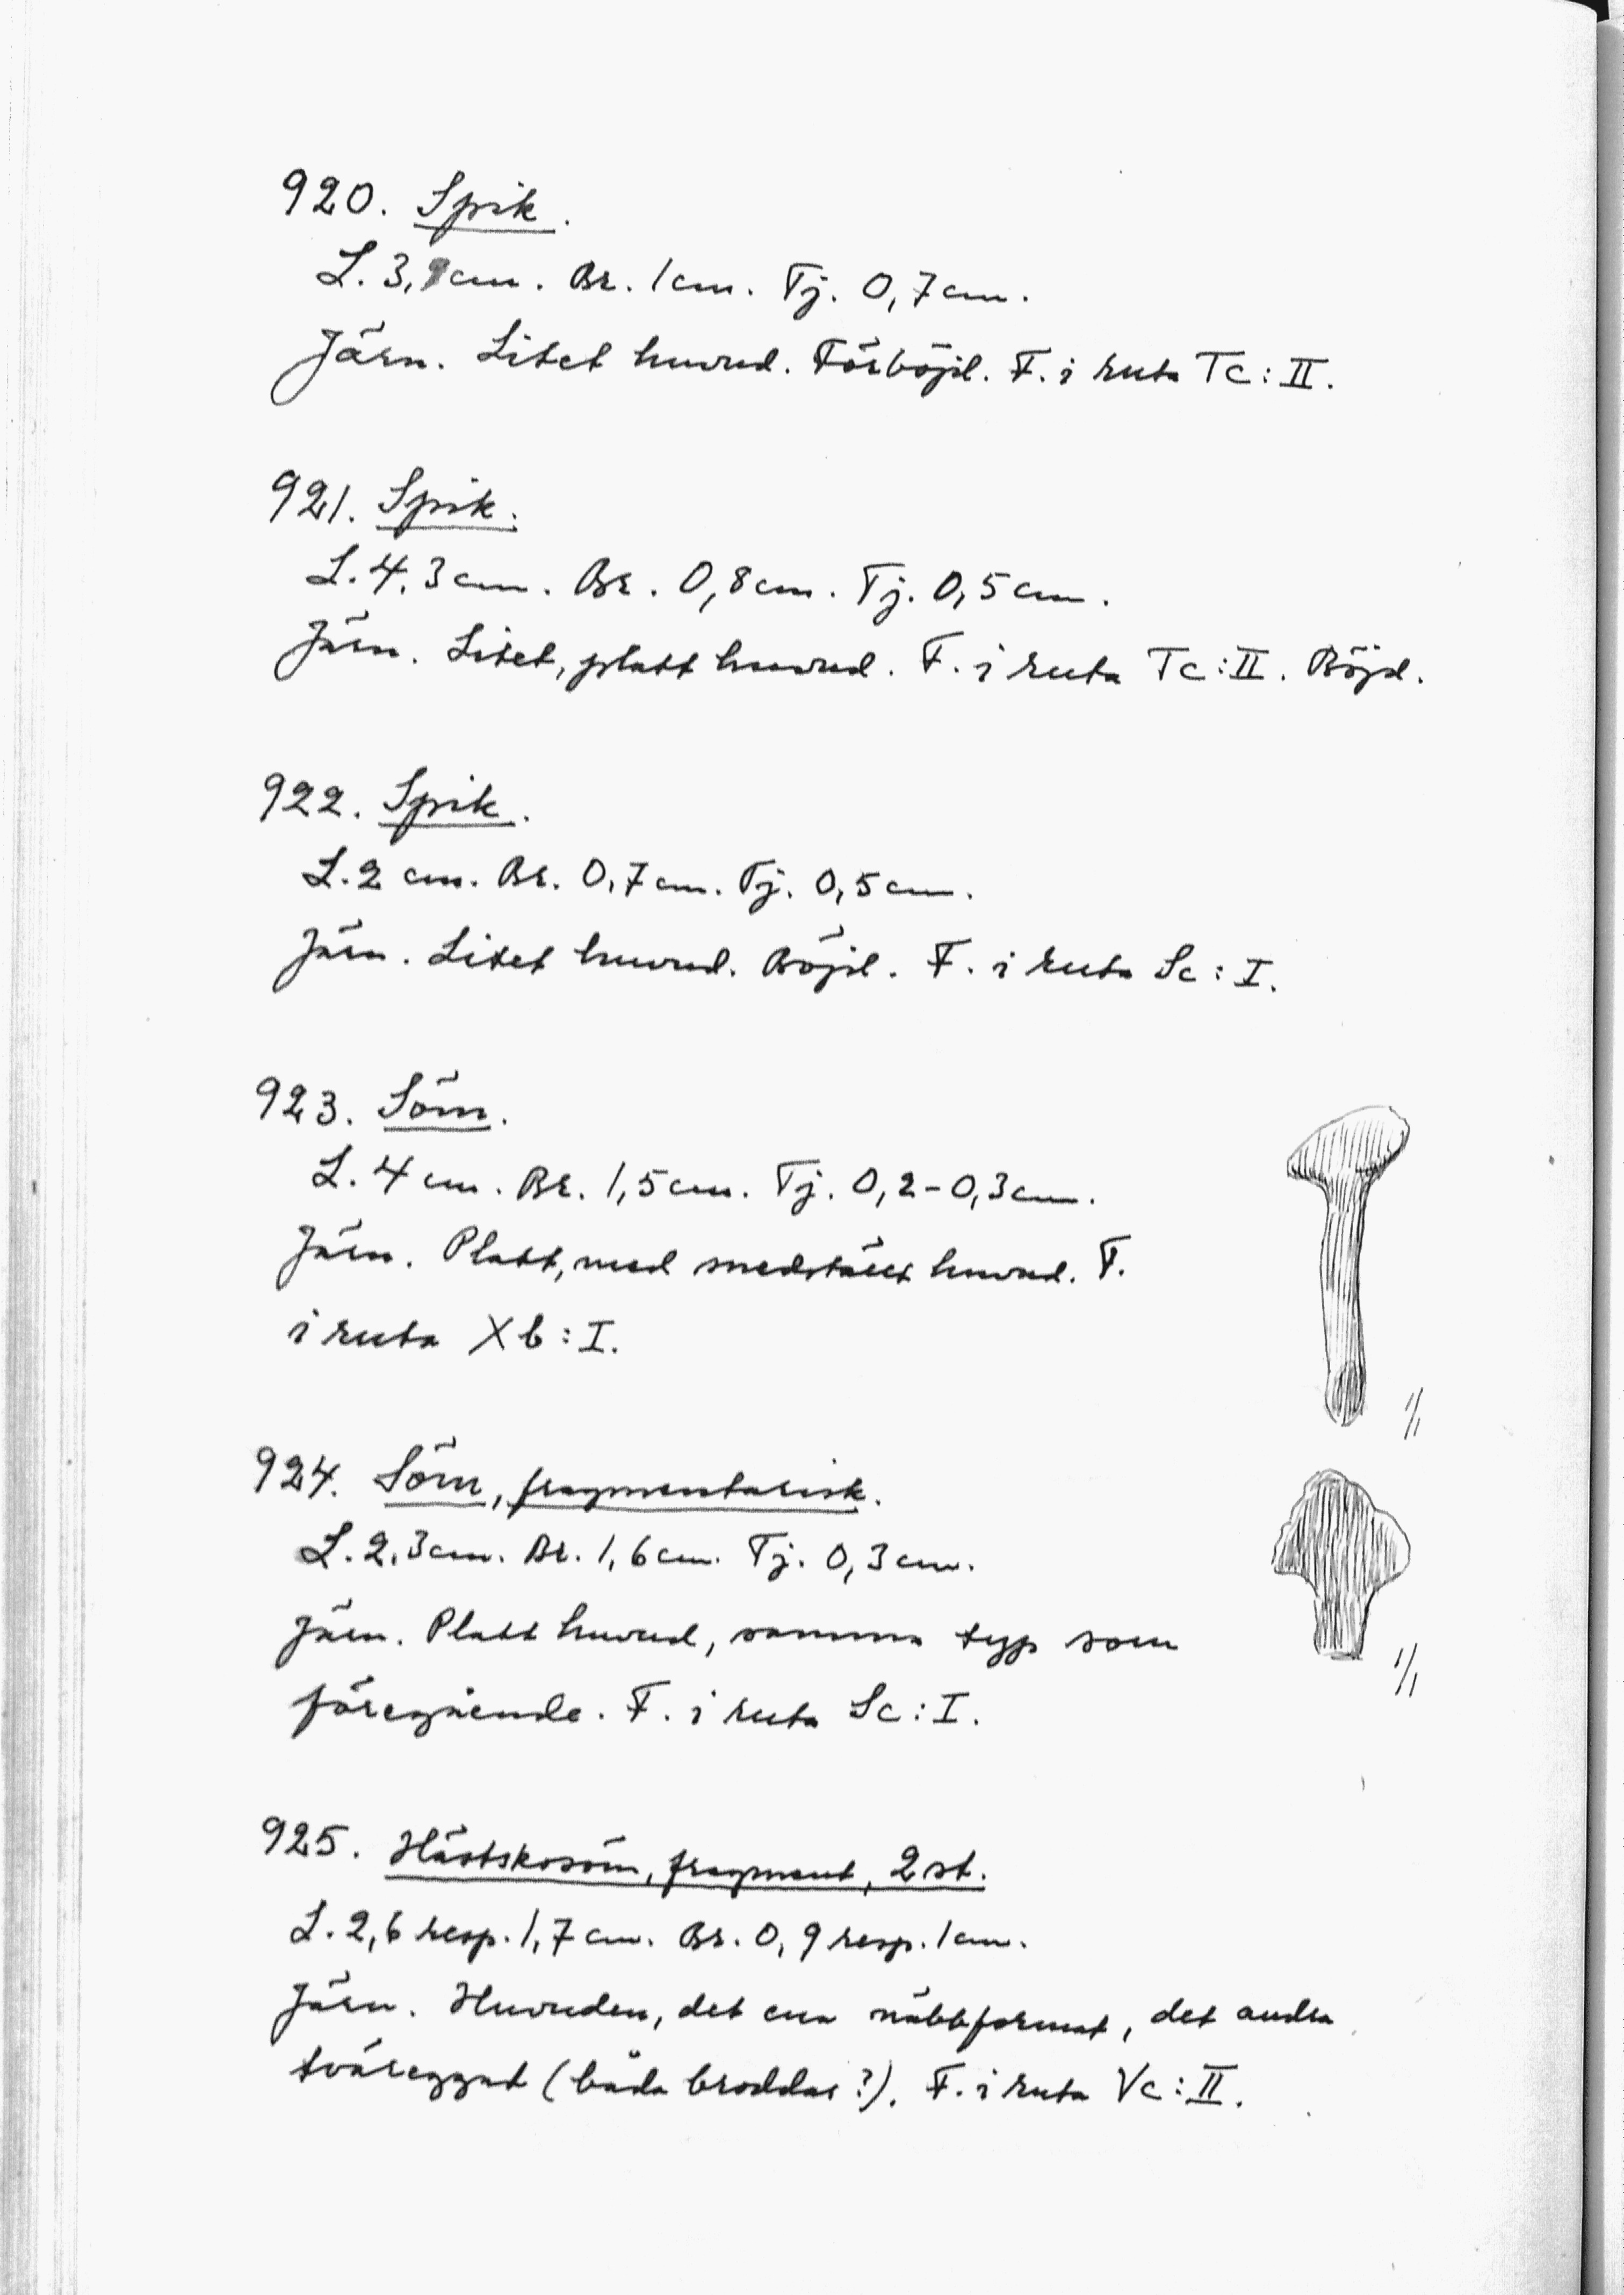 920. Spik.
L. 3,9cm. Br. 1cm. Tj. 0,7cm.
Järn. Litet huvud. Förböjd. F. i ruta Tc: II.
921. Spik.
L. 4,3cm. Br. 0,8cm. Tj. 0,5cm.
Järn. Litet, platt huvud. F. i ruta Tc: II. Böjd.
922. Spik.
L. 2 cm. Br. 0,7cm. Tj. 0,5cm.
Järn. Litet huvud. Böjd. F. i ruta Sc: I.
923. Söm.
L. 4 cm. Br. 1,5cm. Tj. 0,2-0,3cm.
Järn. Platt, med snedställt huvud. F.
i ruta Xb: I.
1/1
924. Söm, fragmentarisk.
L. 2,3cm. Br. 1,6cm. Tj. 0,3cm.
Järn. Platt huvud, samma typ som
föregående. F. i ruta Sc: I.
1/1
925. Hästskosöm, fragment, 2 st.
L. 2,6 resp. 1,7 cm. Br. 0,9 resp. 1cm.
Järn. Huvuden, det ena näbbformat, det andra
tväreggat (båda broddar?). F. i ruta Vc: II.